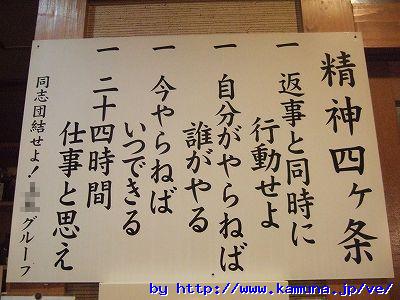 精神四ヶ条
一 返事と同時に
行動せよ
一 自分がやらねば
誰がやる
一 今やらねば
いつできる
一 二十四時間
仕事と思え
同志団結せよ! グループ
by http://www.kamuna.jp/ve/